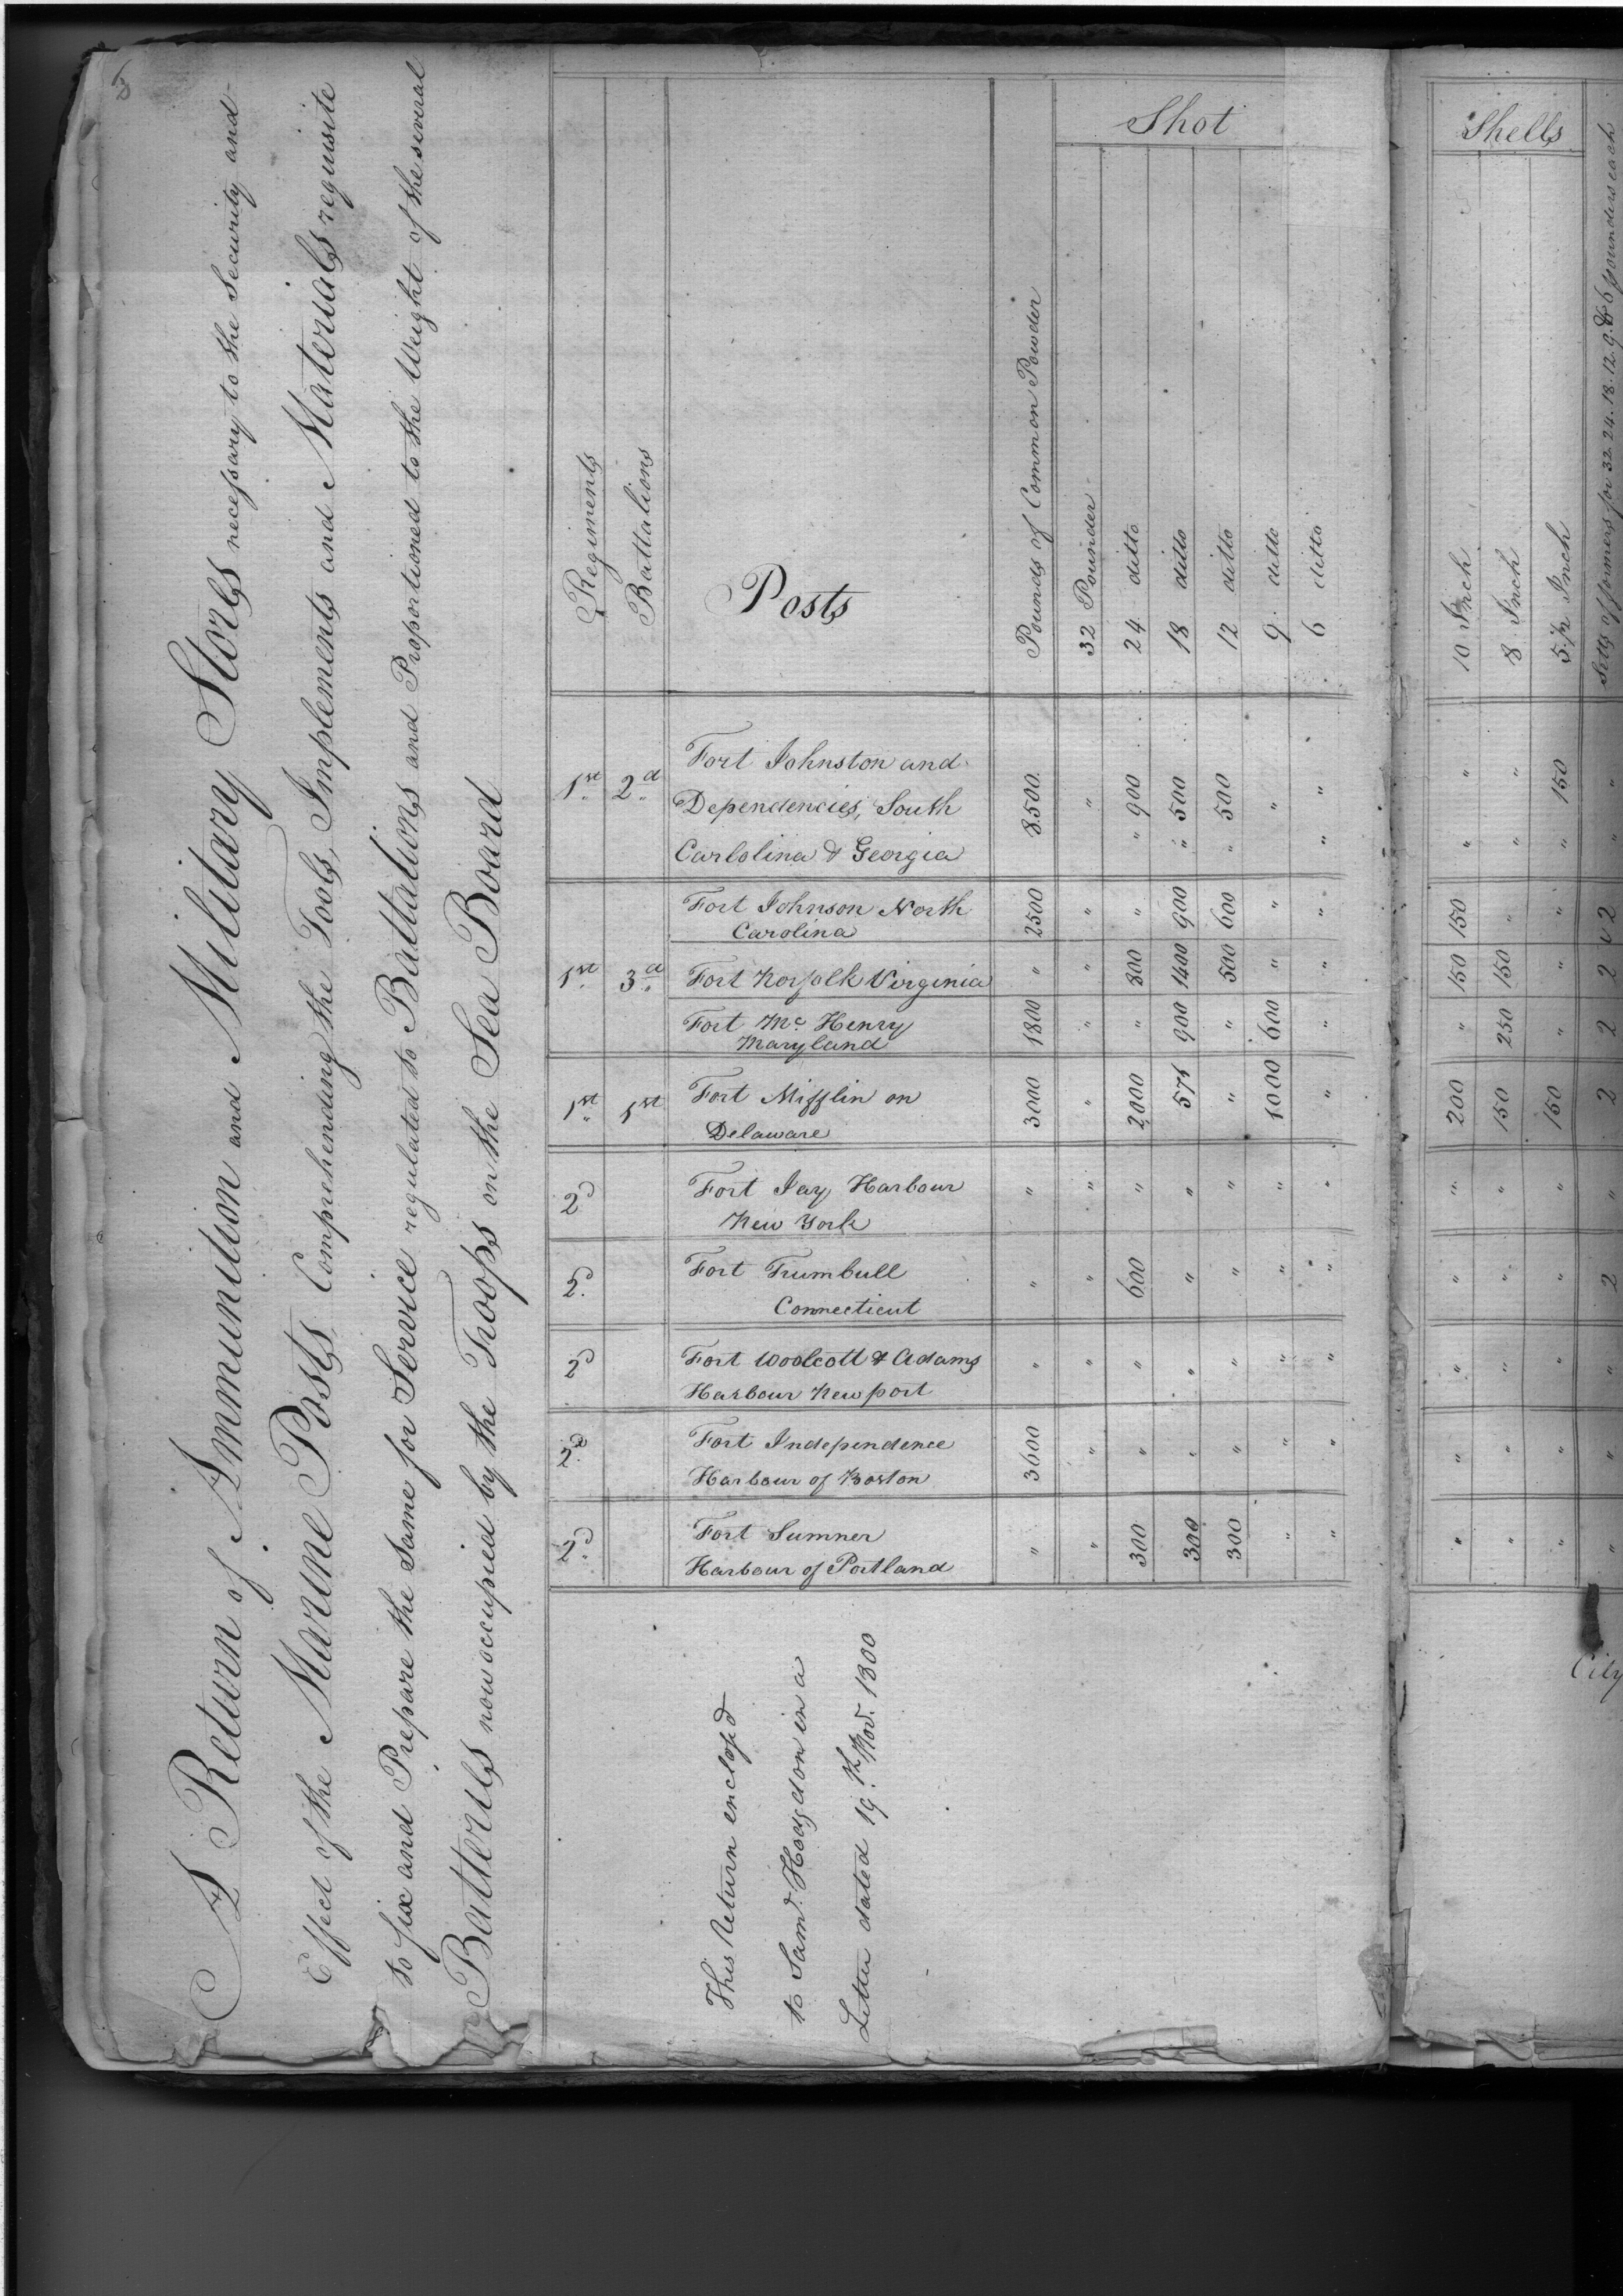 A Return of Ammunition and Military Stores necessary to the Security and
Effect of the Marine Posts Comprehending the Tools, Implements and Materials requisite
to fix and Prepare the Same for Service regulated to Battalions and Proportioned to the Weight of the several
Batteries now occupied by the Troops on the Sea Board
Regiments
Battalions
Posts
Pounds of Common Powder
Shot
32 Pounder
24 ditto
18 ditto
12 ditto
9 ditto
6 ditto
Shells
10 Inch
8 Inch
5 1/2 Inch
Setts of formers for 32. 24. 18. 12. 9. & 6 pounders each
1st 2d Fort Johnston and
Dependencies, South 8.500. " " 900 " 500 500 " " " " 150 "
Carlolina & Georgia " " " " " " " "
Fort Johnson North 2500 " " 900 600 " " 150 " " 2
Carolina
1st 3d Fort Norfolk Virginia " " 800 1400 500 " " 150 150 " 2
Fort Mc Henry 1800 " " 900 " 600 " " 250 " 2
Maryland
1st 1st Fort Mifflin on 3000 " 2,000 575 " 1000 " 200 150 150 2
Delaware
2d Fort Jay, Harbour " " " " " " " " " " "
New York
2d Fort Trumbull " " 600 " " " " " " " 2
Connecticut
2d Fort Woolcott & Adams " " " " " " " " " " "
Harbour New port
2d Fort Independence 3600 " " " " " " " " " "
Harbour of Boston
2d Fort Sumner " " 300 300 300 " " " " " "
Harbour of Portland
This Return enclosd
to Saml. Hodgdon in a
Letter dated 19.th Nov. 1800
City